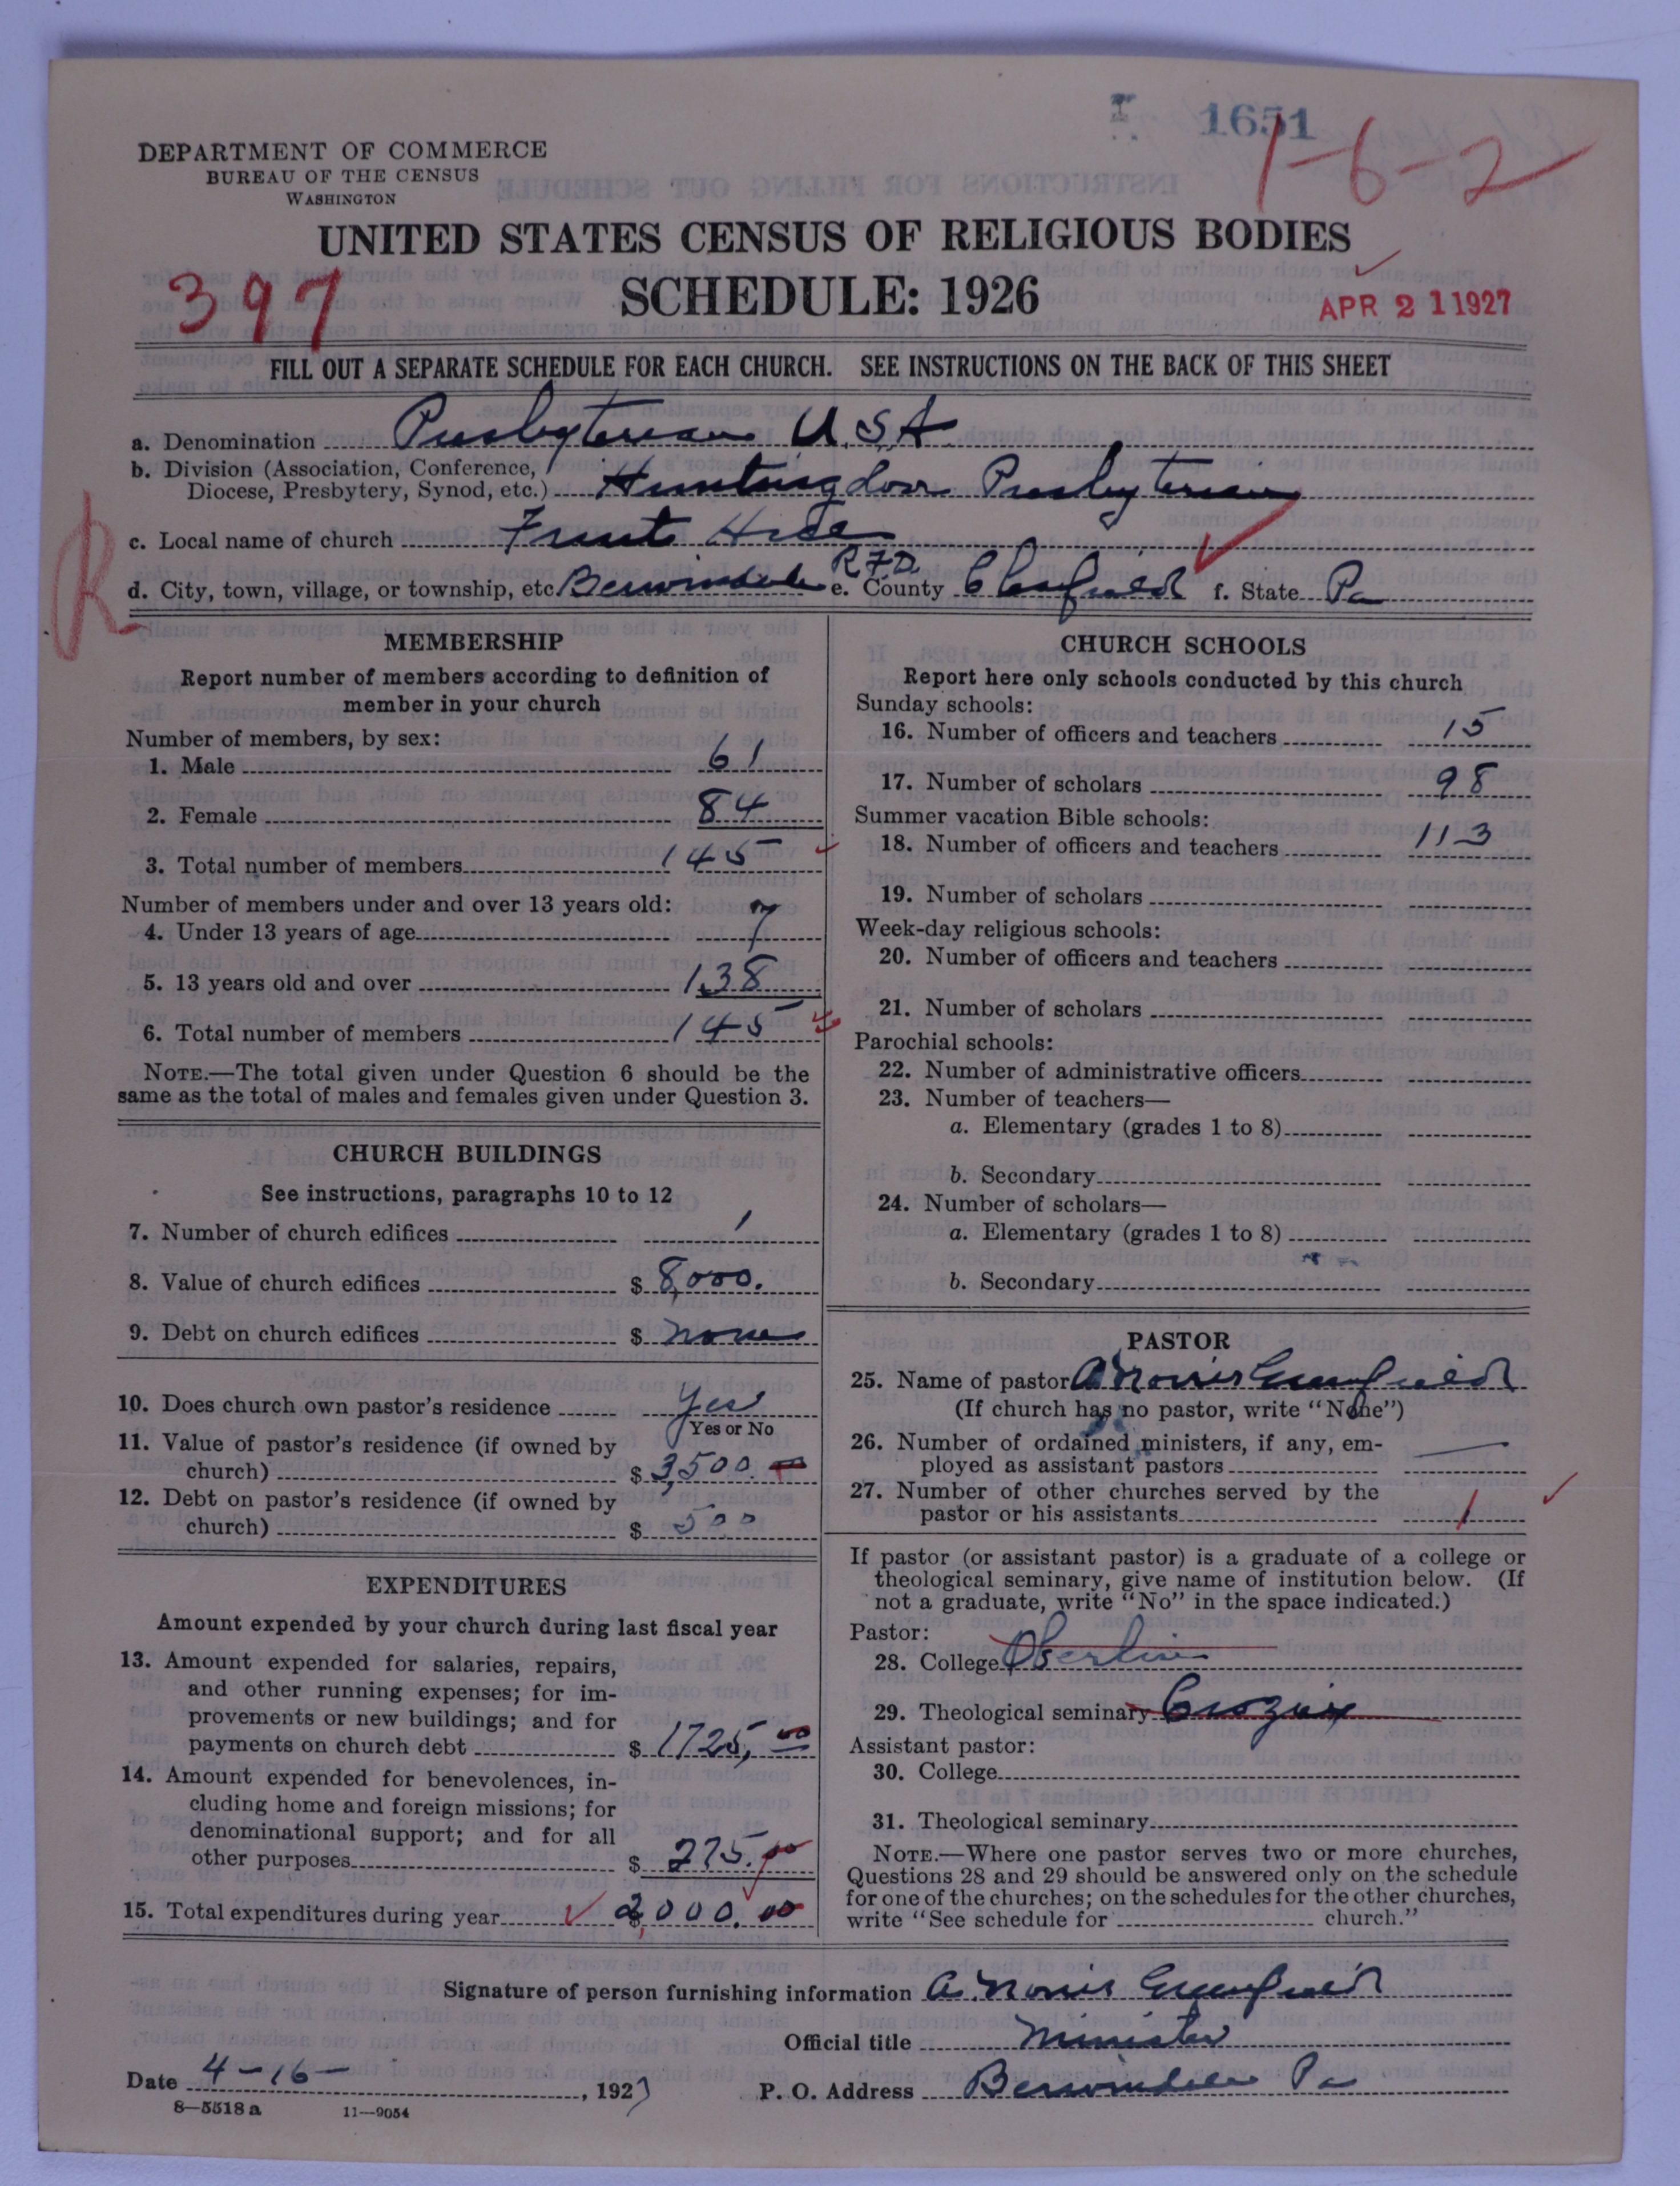 1651
1-6-2
DEPARTMENT OF COMMERCE
BUREAU OF THE CENSUS
WASHINGTON
UNITED STATES CENSUS OF RELIGIOUS BODIES
397
SCHEDULE: 1926
APR 21 1927
FILL OUT A SEPARATE SCHEDULE FOR EACH CHURCH. SEE INSTRUCTIONS ON THE BACK OF THIS SHEET
a. Denomination Presbyterian U.S.A.
b. Division (Association, Conference,
Diocese, Presbytery, Synod, etc.) Huntingdon Presbyterian
R
c. Local name of church Fruit Hill
d. City, town, village, or township, etc. Berwindale R.F.D. e. County Clearfield f. State Pa
MEMBERSHIP
Report number of members according to definition of
member in your church
Number of members, by sex:
1. Male 61
2. Female 84
3. Total number of members 145
Number of members under and over 13 years old:
4. Under 13 years of age 7
5. 13 years old and over 138
6. Total number of members 145
NOTE.—The total given under Question 6 should be the
same as the total of males and females given under Question 3.
CHURCH BUILDINGS
See instructions, paragraphs 10 to 12
7. Number of church edifices 1
8. Value of church edifices $ 8,000.
9. Debt on church edifices $ none
10. Does church own pastor's residence Yes
Yes or No
11. Value of pastor's residence (if owned by
church) $ 3,500.
12. Debt on pastor's residence (if owned by
church) $ 500
EXPENDITURES
Amount expended by your church during last fiscal year
13. Amount expended for salaries, repairs,
and other running expenses; for im-
provements or new buildings; and for
payments on church debt $ 1725.00
14. Amount expended for benevolences, in-
cluding home and foreign missions; for
denominational support; and for all
other purposes $ 275.00
15. Total expenditures during year $ 2,000.00
CHURCH SCHOOLS
Report here only schools conducted by this church
Sunday schools:
16. Number of officers and teachers 15
17. Number of scholars 98
Summer vacation Bible schools:
18. Number of officers and teachers 113
19. Number of scholars
Week-day religious schools:
20. Number of officers and teachers
21. Number of scholars
Parochial schools:
22. Number of administrative officers
23. Number of teachers—
a. Elementary (grades 1 to 8)
b. Secondary
24. Number of scholars—
a. Elementary (grades 1 to 8)
b. Secondary
PASTOR
25. Name of pastor A Norris Greenfield
(If church has no pastor, write "None")
26. Number of ordained ministers, if any, em-
ployed as assistant pastors —
27. Number of other churches served by the
pastor or his assistants 1
If pastor (or assistant pastor) is a graduate of a college or
theological seminary, give name of institution below. (If
not a graduate, write "No" in the space indicated.)
Pastor:
28. College Oberlin
29. Theological seminary Crozier
Assistant pastor:
30. College
31. Theological seminary
NOTE.—Where one pastor serves two or more churches,
Questions 28 and 29 should be answered only on the schedule
for one of the churches; on the schedules for the other churches,
write "See schedule for church."
Signature of person furnishing information A. Norris Greenfield
Official title Minister
Date 4-16-, 1927 P. O. Address Berwindale Pa
8—5518 a 11—9054